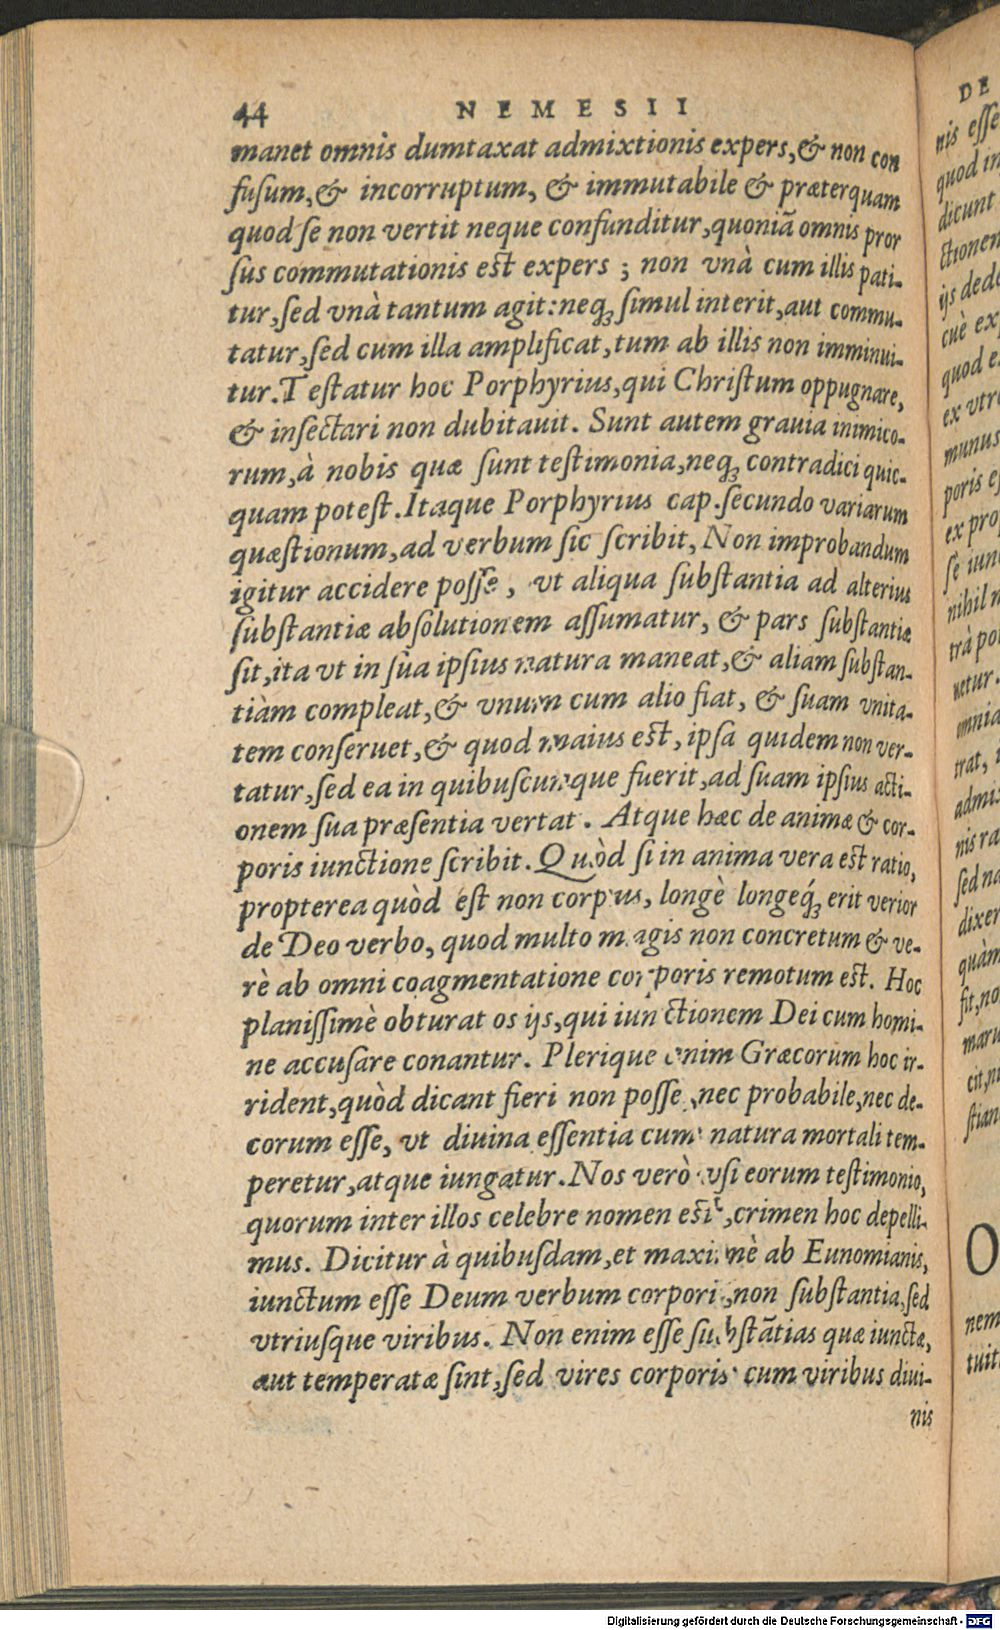 44 NEMESII
manet omnis dumtaxat admixtionis expers, & non con
fusum, & incorruptum, & immutabile & præterquam
quod se non vertit neque confunditur, quoniã omnis pror
sus commutationis est expers; non vnà cum illis pati-
tur, sed vnà tantum agit: neq; simul interit, aut commu-
tatur, sed cum illa amplificat, tum ab illis non imminui-
tur. Testatur hoc Porphyrius, qui Christum oppugnare,
& insectari non dubitauit. Sunt autem grauia inimico-
rum, à nobis quæ sunt testimonia, neq; contradici quic-
quam potest. Itaque Porphyrius cap. secundo variarum
quæstionum, ad verbum sic scribit, Non improbandum
igitur accidere posse, vt aliqua substantia ad alterius
substantiæ absolutionem assumatur, & pars substantiæ
sit, ita vt in sua ipsius natura maneat, & aliam substan-
tiàm compleat, & vnum cum alio fiat, & suam vnita-
tem conseruet, & quod maius est, ipsa quidem non ver-
tatur, sed ea in quibuscunque fuerit, ad suam ipsius acti-
onem sua præsentia vertat. Atque hæc de animæ & cor-
poris iunctione scribit. Quòd si in anima vera est ratio,
propterea quòd est non corpus, longè longeq́; erit verior
de Deo verbo, quod multo magis non concretum & ve-
rè ab omni coagmentatione corporis remotum est. Hoc
planissimè obturat os ijs, qui iunctionem Dei cum homi-
ne accusare conantur. Plerique enim Græcorum hoc ir-
rident, quòd dicant fieri non posse, nec probabile, nec de-
corum esse, vt diuina essentia cum natura mortali tem-
peretur, atque iungatur. Nos verò vsi eorum testimonio,
quorum inter illos celebre nomen est, crimen hoc depelli-
mus. Dicitur à quibusdam, et maximè ab Eunomianis,
iunctum esse Deum verbum corpori, non substantia, sed
vtriusque viribus. Non enim esse substãtias quæ iunctæ,
aut temperatæ sint, sed vires corporis cum viribus diui-
nis
DE
nis esse
quod in
dicunt
ctionem
ijs dede
cuè ex
quod e
ex vtr
munus
poris e
ex pro
sè iun
nihil n
trà po
uetur.
omnia
trat,
admi
nis ra
sed na
dixer
quàm
fit, no
maru
cit, n
stian
O
nem
tuit
Digitalisierung gefördert durch die Deutsche Forschungsgemeinschaft - DFG